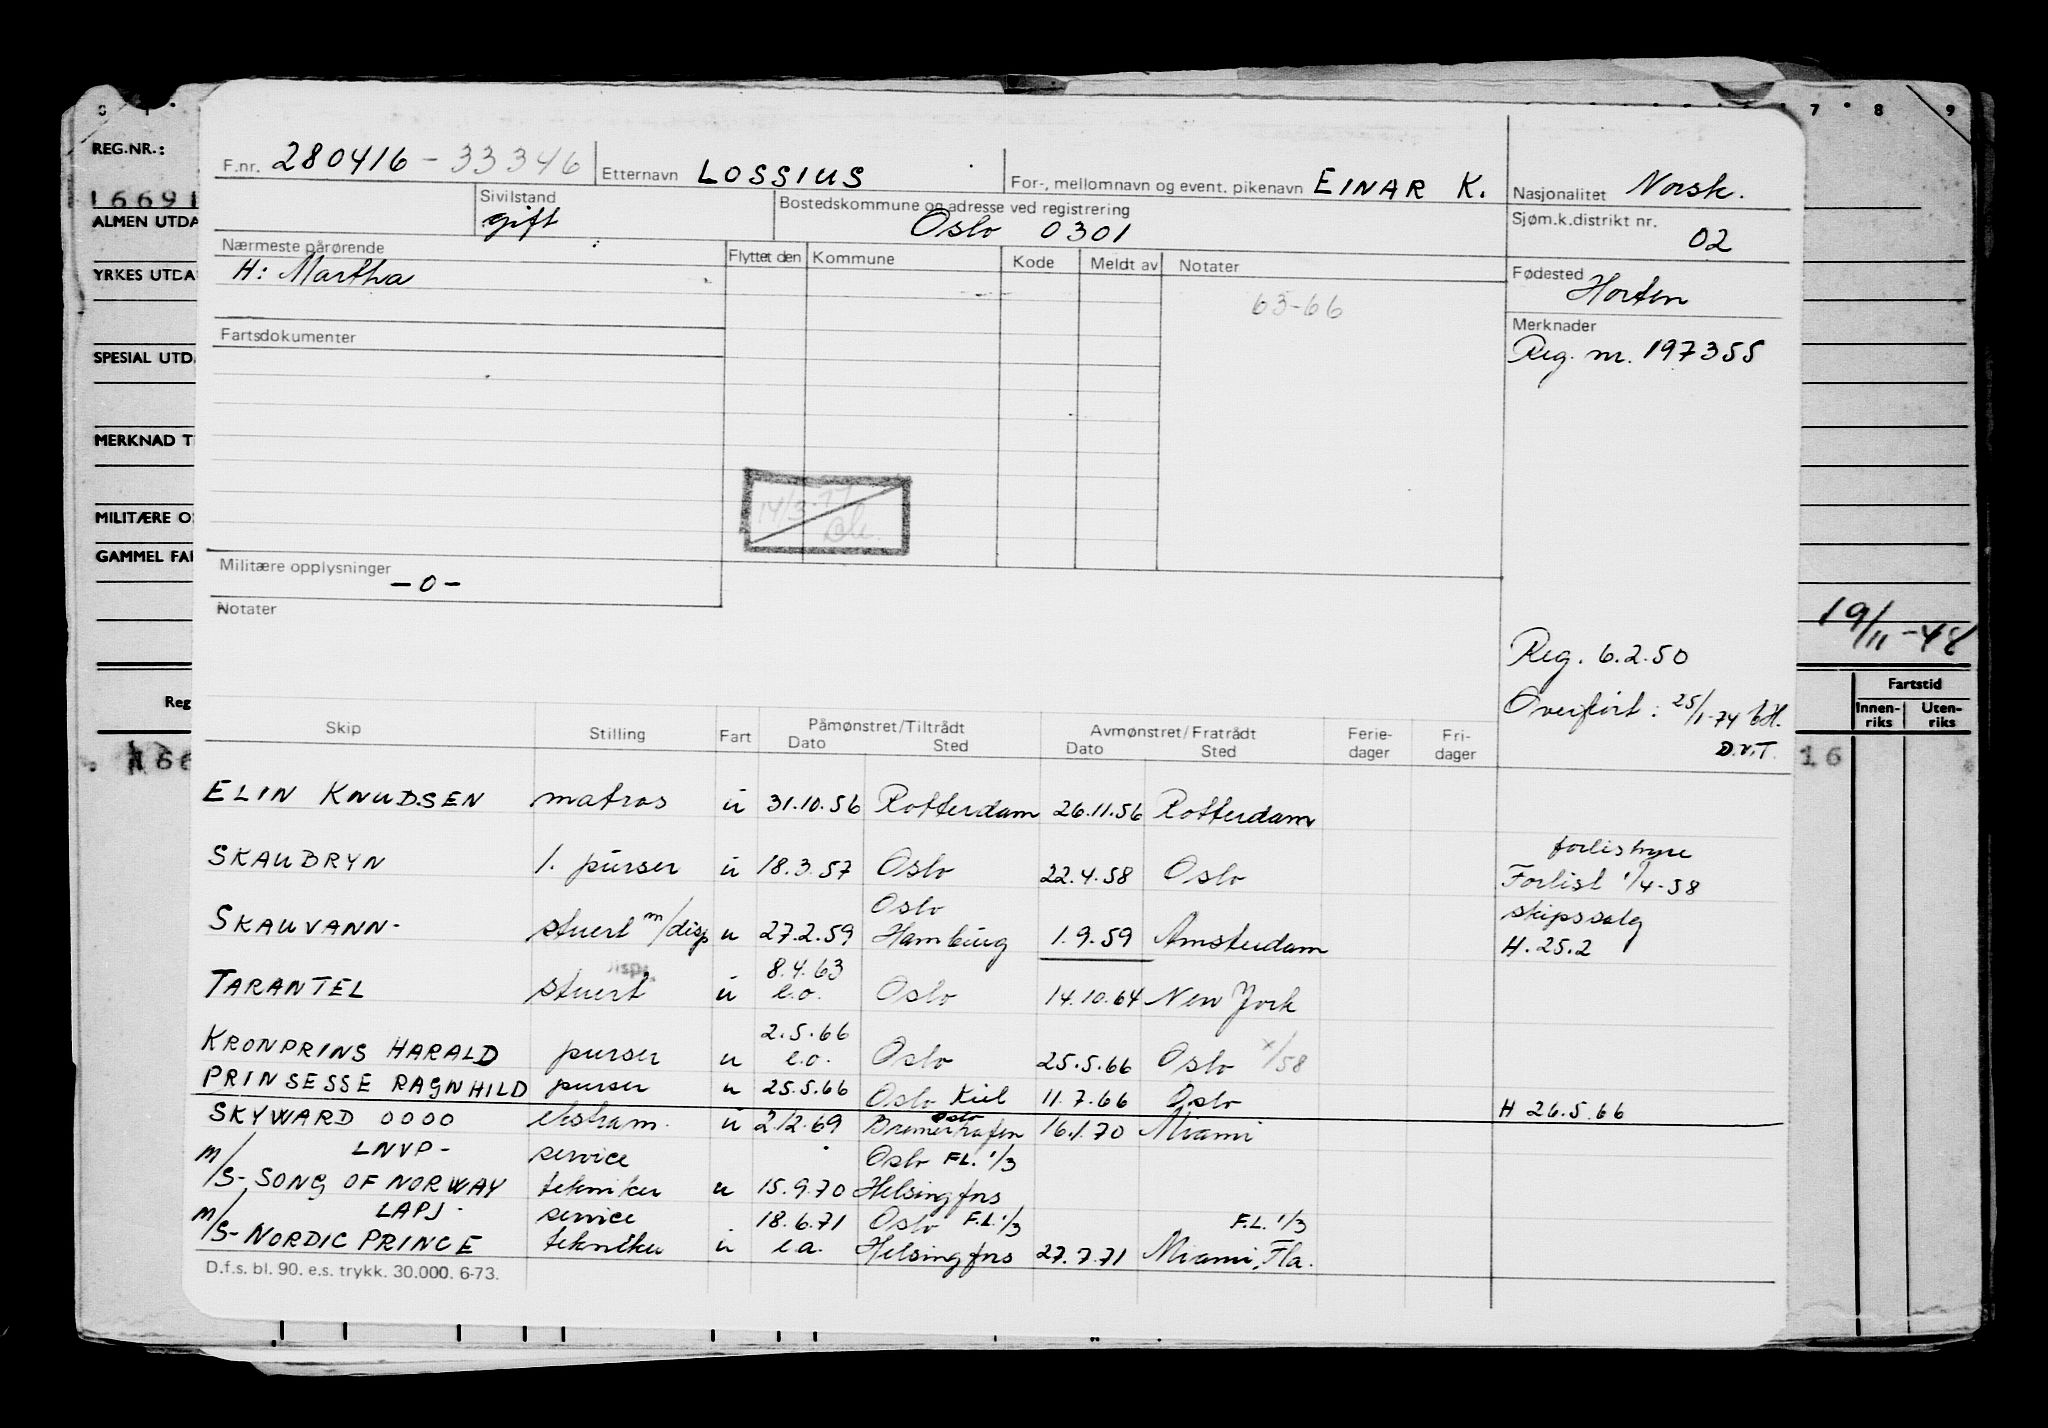 6 7 8 9
REG.NR.:
16691
ALMEN UTDA
YRKES UTDA
SPESIAL UTD
MERKNAD T
MILITÆRE O
GAMMEL FA
Reg
166
F.nr. 280416 - 33346 Etternavn LOSSIUS For-, mellomnavn og event. pikenavn EINAR K. Nasjonalitet Norsk.
Sivilstand gift Bostedskommune og adresse ved registrering Oslo 0301 Sjøm.k.distrikt nr. 02
Nærmeste pårørende Flyttet den Kommune Kode Meldt av Notater Fødested Horten
H: Martha
63-66
Fartsdokumenter Merknader
Reg. nr. 197355
14/3-77
Militære opplysninger -0-
Notater
19/11-48
Reg. 6.2.50
Overført: 25/1-74 D.v.T.
Fartstid
Innen-riks Uten-riks
16
Skip Stilling Fart Påmønstret/Tiltrådt Dato Sted Avmønstret/Fratrådt Dato Sted Ferie-dager Fri-dager
ELIN KNUDSEN matros u 31.10.56 Rotterdam 26.11.56 Rotterdam
forlishyre
SKAUBRYN 1. purser u 18.3.57 Oslo 22.4.58 Oslo Forlist 1/4-58
Oslo skipssalg
SKAUVANN- stuert m/disp u 27.2.59 Hamburg 1.9.59 Amsterdam H. 25.2
disp. 8.4.63
TARANTEL stuert u e.o. Oslo 14.10.64 New York
2.5.66
KRONPRINS HARALD purser u e.o. Oslo 25.5.66 Oslo x/58
PRINSESSE RAGNHILD purser u 25.5.66 Oslo Kiel 11.7.66 Oslo H 26.5.66
Oslo
SKYWARD 0000 ekstram. u 2.12.69 Bremerhafen 16.1.70 Miami
LNVP- service Oslo F.L. 1/3
M/S- SONG OF NORWAY tekniker u 15.9.70 Helsingfors
LAPJ- service 18.6.71 Oslo F.L. 1/3 F.L. 1/3
M/S- NORDIC PRINCE tekniker u e.a. Helsingfors 27.7.71 Miami, Fla.
D.f.s. bl. 90. e.s. trykk. 30.000. 6-73.